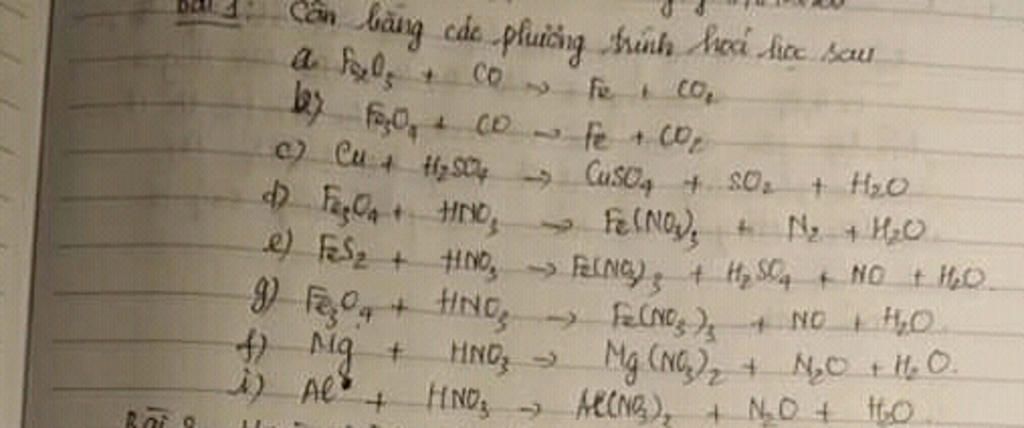 Bài 1: Cân bằng các phương trình hoá học sau
a. Fe₂O₃ + CO → Fe + CO₂
b) Fe₃O₄ + CO → Fe + CO₂
c) Cu + H₂SO₄ → CuSO₄ + SO₂ + H₂O
d) Fe₃O₄ + HNO₃ → Fe(NO₃)₃ + N₂ + H₂O
e) FeS₂ + HNO₃ → Fe(NO₃)₃ + H₂SO₄ + NO + H₂O.
g) Fe₃O₄ + HNO₃ → Fe(NO₃)₃ + NO + H₂O
f) Mg + HNO₃ → Mg(NO₃)₂ + N₂O + H₂O.
i) Al + HNO₃ → Al(NO₃)₂ + N₂O + H₂O
Bài